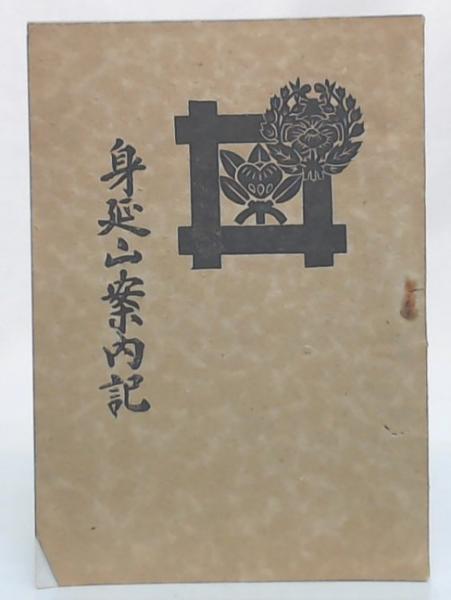 身延山案内記